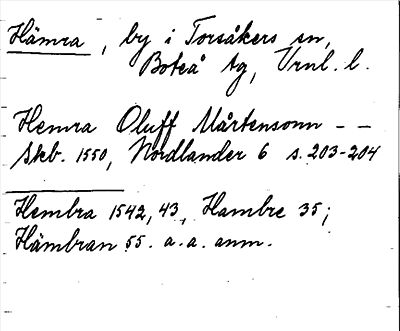 Hämra, by i Torsåkers sn,
Boteå tg, Vrnl. l.
Hemra Oluff Mårtensonn - -
Skb. 1550, Nordlander 6 s. 203-204
Hembra 1542, 43, Hambre 35;
Hämbran 55. a. a. anm.